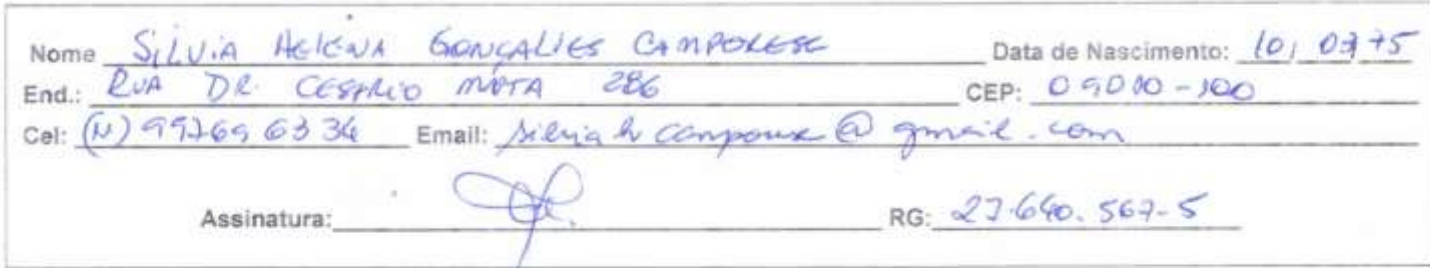 Nome SILVIA HELENA GONÇALVES CAMPORESE Data de Nascimento: 10/ 07/75
End.: RUA DR. CESÁRIO MOTA 286 CEP: 09010-100
Cel: (11) 99769 6334 Email: silvia h camporese @ gmail.com
Assinatura: RG: 27.640.567-5